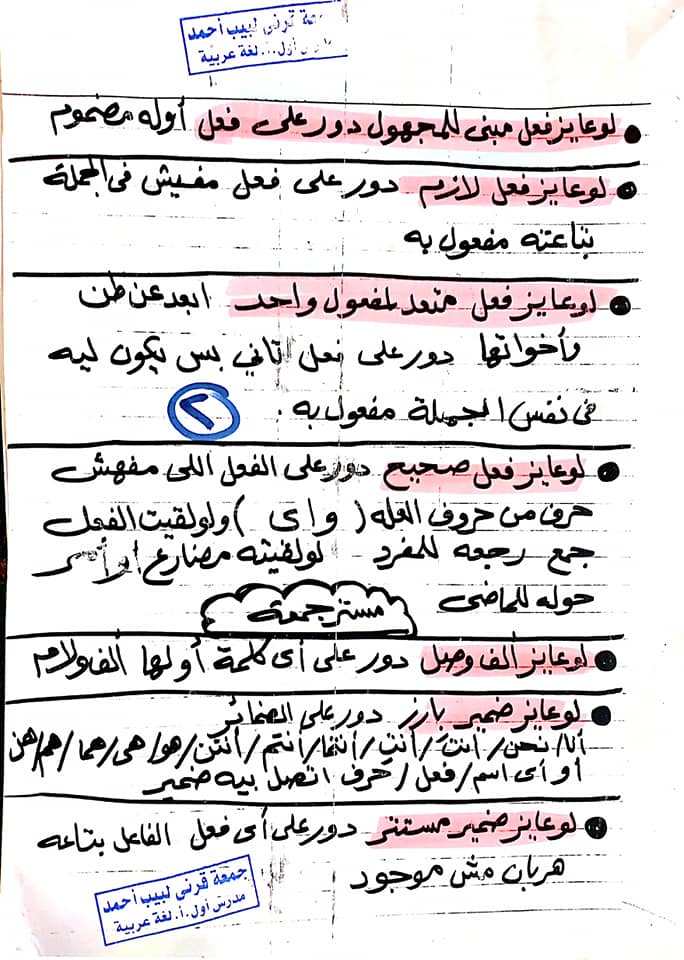 جمعة قرنى لبيب أحمد
أول.أ.لغة عربية
لو عايز فعل مبنى للمجهول دور على فعل أوله مضموم
لو عايز فعل لازم دور على فعل مفيش فى الجملة
بتاعته مفعول به
لو عايز فعل متعد لمفعول واحد ابعد عن ظن
وأخواتها دور على فعل تاني بس يكون ليه
فى نفس الجملة مفعول به .
٢
لو عايز فعل صحيح دور على الفعل اللى مفهش
حرف من حروف العله ( و ا ى ) ولو لقيت الفعل
جمع رجعه للمفرد لو لقيته مضارع أو أمر
حوله للماضى
مستر جمعة
لو عايز ألف وصل دور على أى كلمة أولها ألف ولام
لو عايز ضمير بارز دور على الضمائر
أنا/نحن/أنتَ/أنتِ/أنتما/أنتم/أنتن/هو/هى/هما/هم/هن
أو أى اسم/فعل/حرف اتصل بيه ضمير
لو عايز ضمير مستتر دور على أى فعل الفاعل بتاعه
هربان مش موجود
جمعة قرنى لبيب أحمد
مدرس أول.أ.لغة عربية